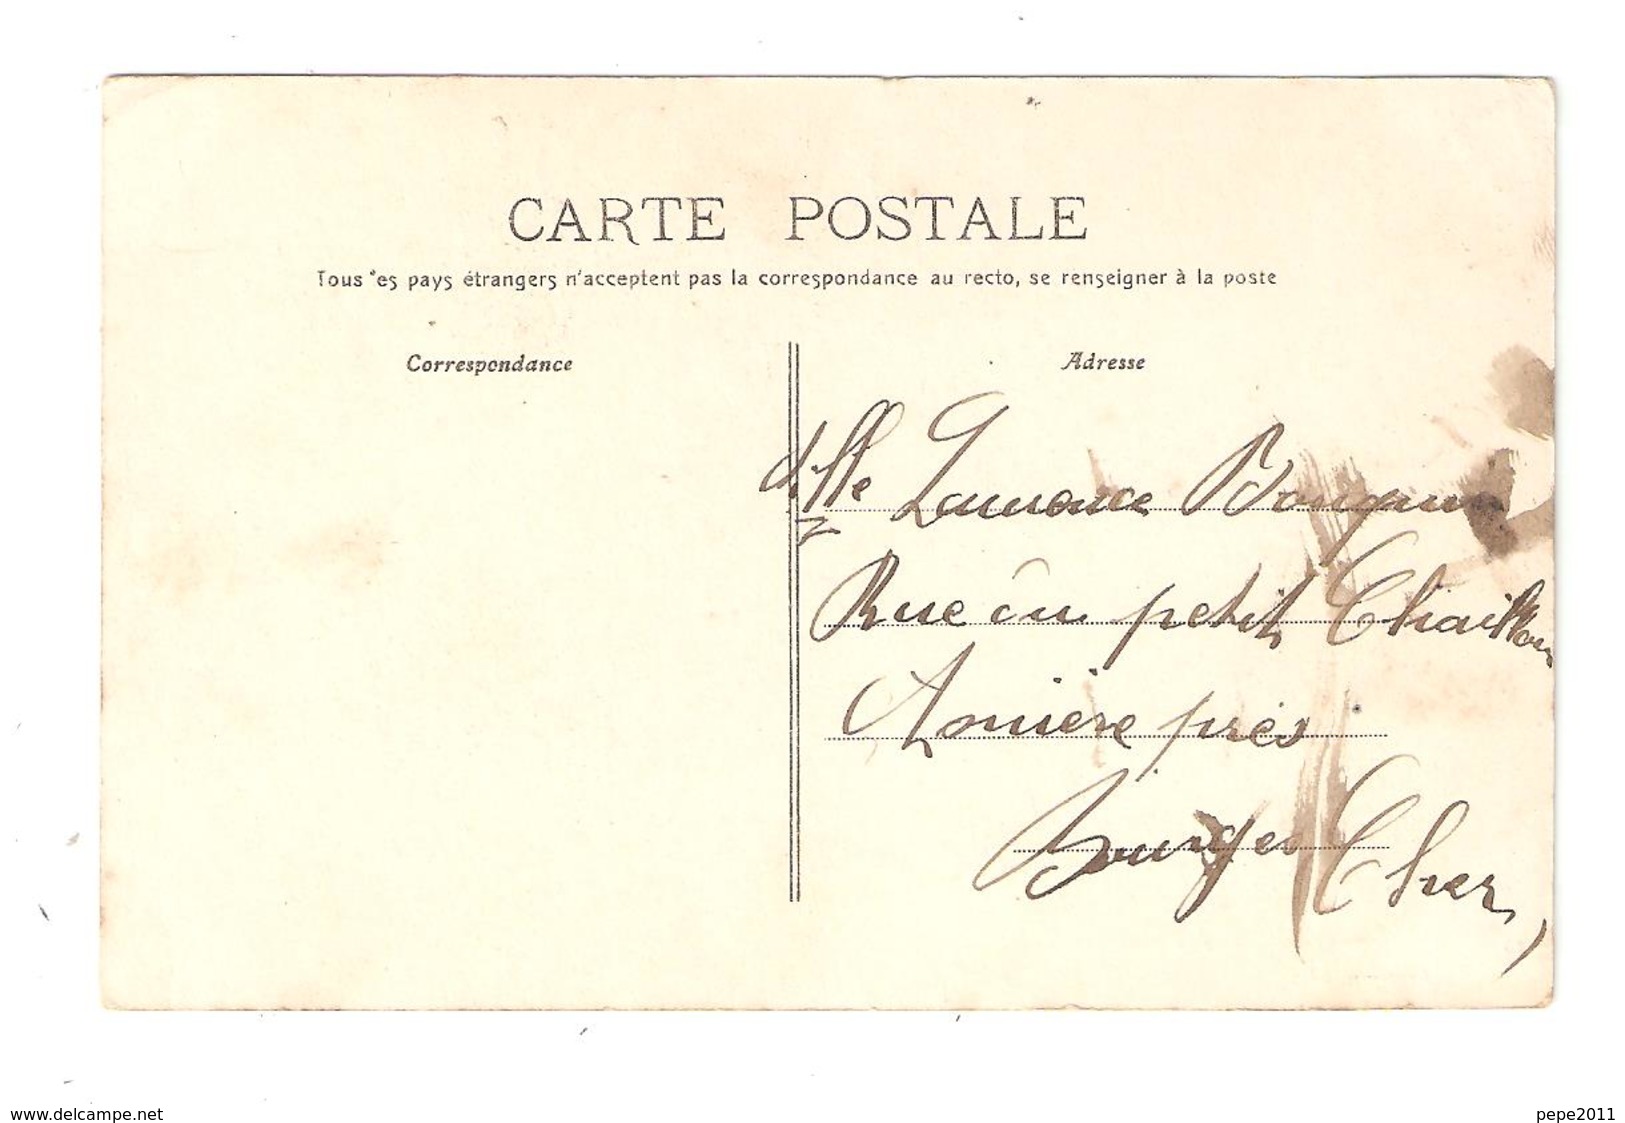 CARTE POSTALE
Tous les pays étrangers n'acceptent pas la correspondance au recto, se renseigner à la poste
Correspondance
Adresse
Mlle Laurence
Rue du petit Chaillou
Asnière près
Bourges Cher,
www.delcampe.net
pepe2011